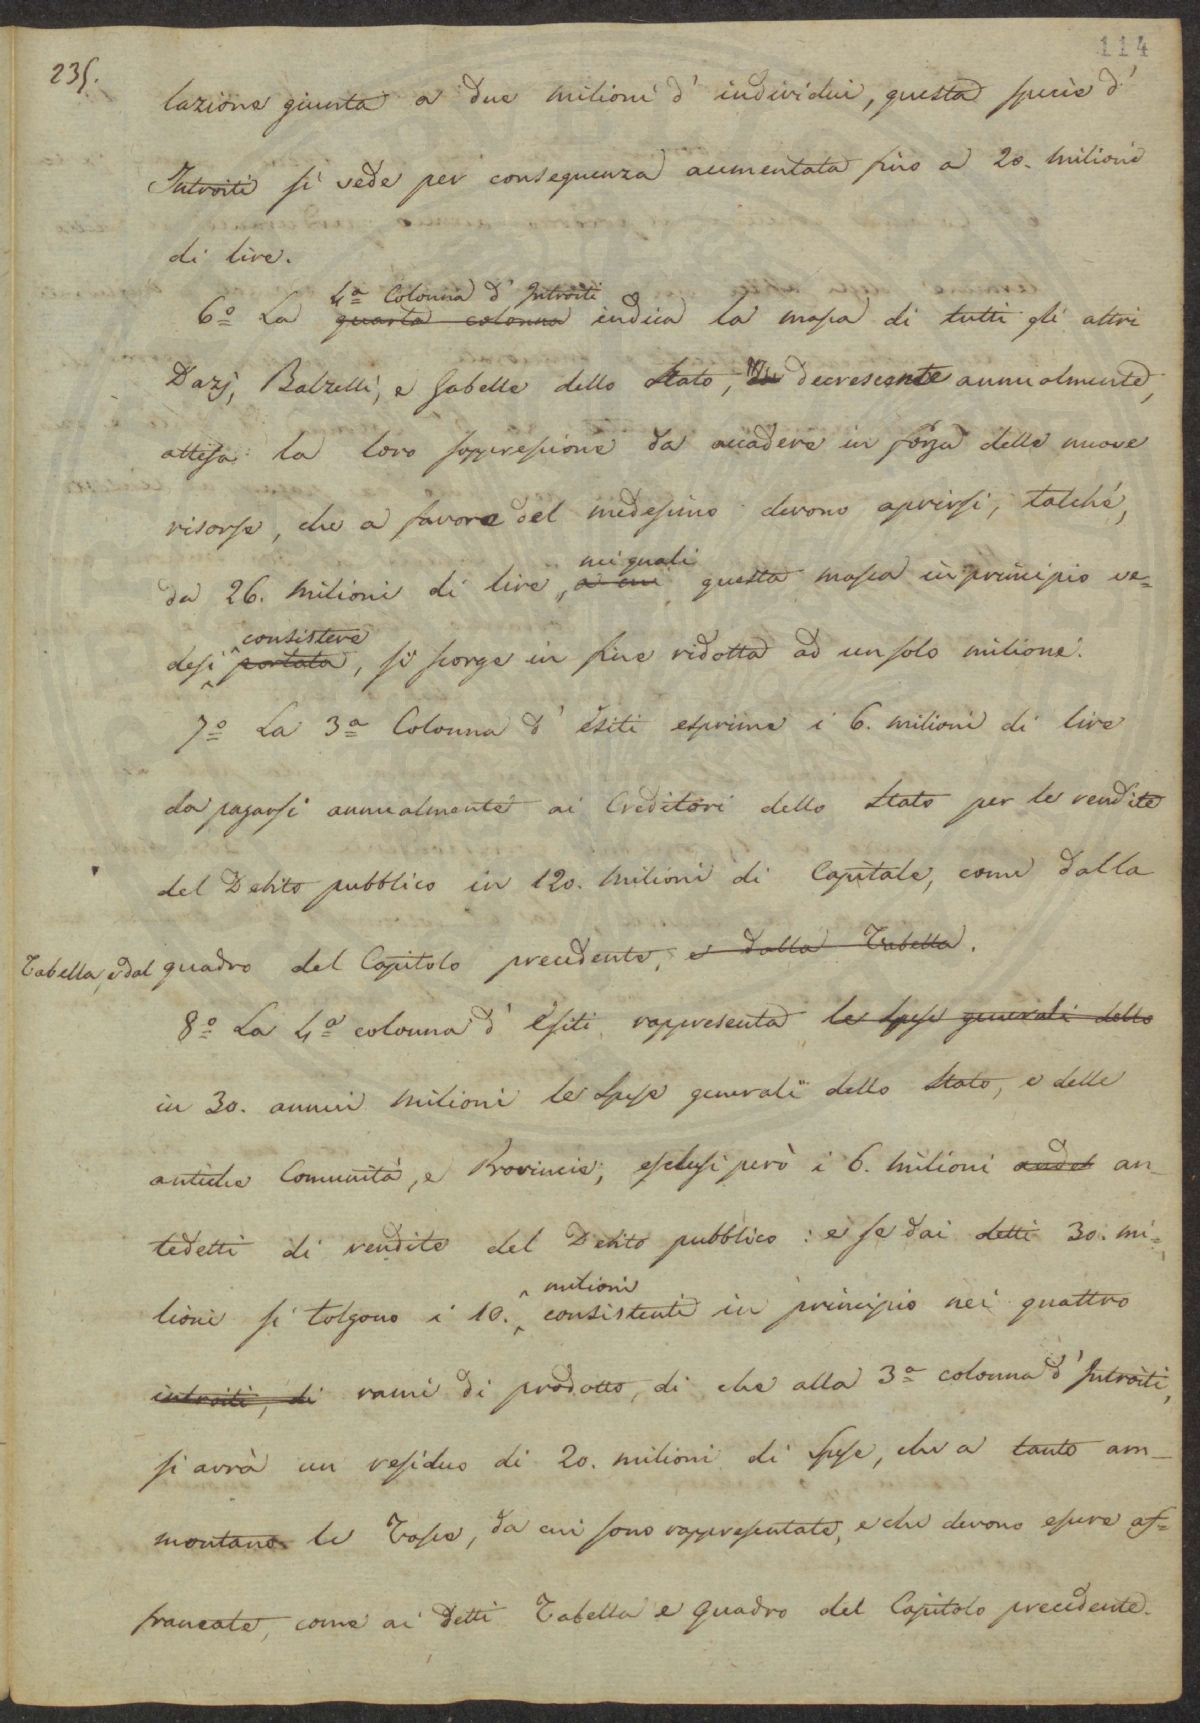 114
235.
lazione giunta a due milioni d' individui, questa specie d'
Introiti si vede per conseguenza aumentata fino a 20. milioni
di lire.
4ª Colonna d' Introiti
6º La quarta colonna indica la massa di tutti gli altri
Dazj, Balzelli, e Gabelle dello Stato, decrescente annualmente,
attesa la loro soppressione da accadere in forza delle nuove
risorse, che a favore del medesimo devono aprirsi, talché,
nei quali
da 26. milioni di lire, a cui questa massa in principio ve=
consistere
desi portata, si scorge in fine ridotta ad un solo milione.
7º La 3ª Colonna d' esiti esprime i 6. milioni di lire
da pagarsi annualmente ai Creditori dello Stato per le rendite
del Debito pubblico in 120. milioni di Capitale, come dalla
Tabella, e dal quadro del Capitolo precedente, e dalla Tabella.
8º La 4ª colonna d' Esiti rappresenta le spese generali dello
in 30. annui milioni le spese generali dello Stato, e delle
antiche Comunità, e Provincie, esclusi però i 6. milioni an=
tedetti di rendite del Debito pubblico: e se dai detti 30. mi=
milioni
lioni si tolgono i 10. consistenti in principio nei quattro
introiti, di rami di prodotto, di che alla 3ª colonna d' Introiti,
si avrà un residuo di 20. milioni di spese, che a tanto am=
montano le Tasse, da cui sono rappresentate, e che devono essere af=
francate, come ai detti Tabella e Quadro del Capitolo precedente.